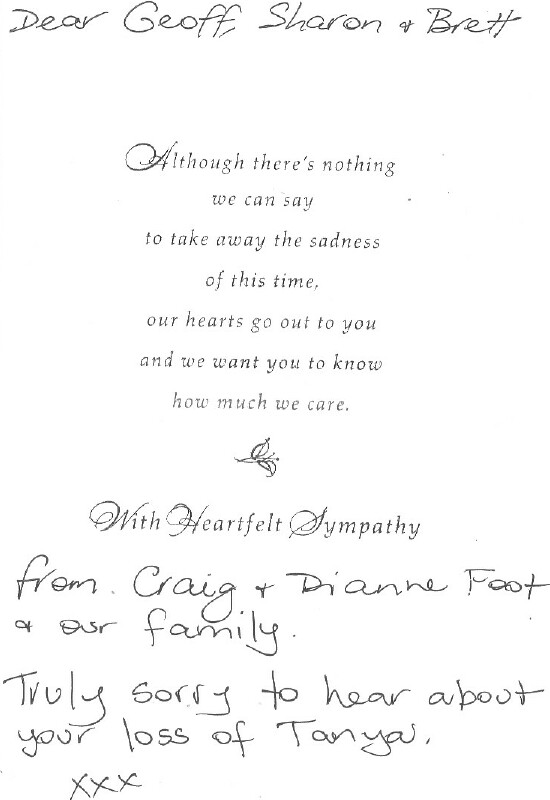 Dear Geoff, Sharon & Brett
Although there's nothing
we can say
to take away the sadness
of this time,
our hearts go out to you
and we want you to know
how much we care.
With Heartfelt Sympathy
from. Craig + Dianne Foot
& our family.
Truly sorry to hear about
your loss of Tanya.
xxx